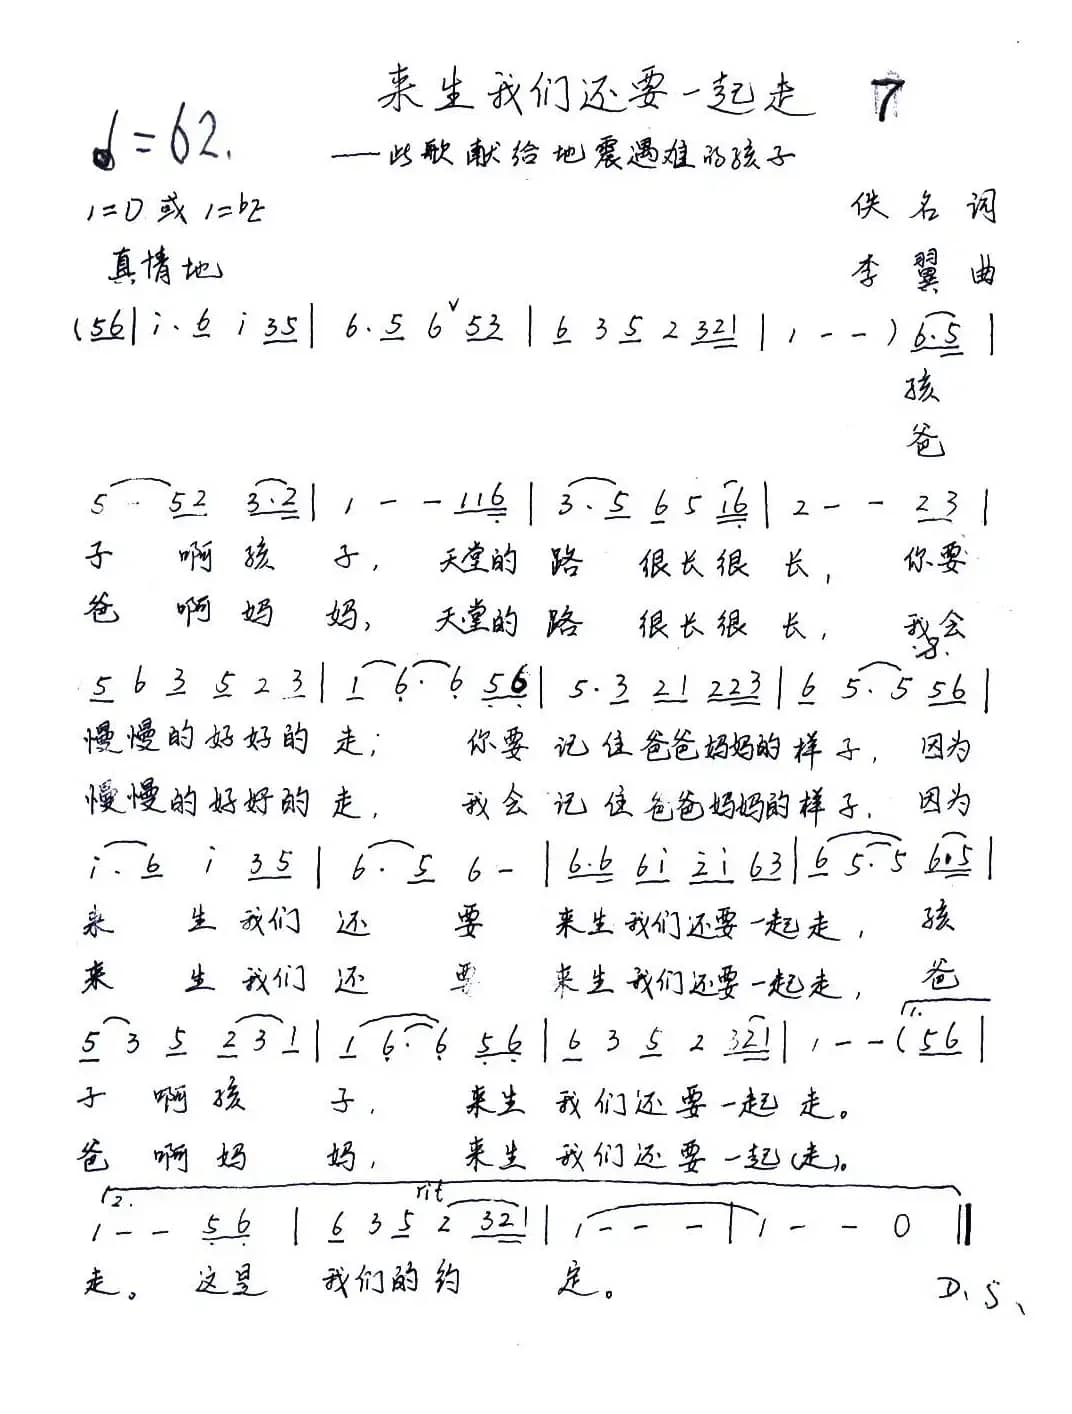 来生我们还要一起走 7
♩=62.
——此歌献给地震遇难的孩子
1=D 或 1=bE 佚名词
真情地 李翼曲
(56|i.6 i 35| 6.5 6ˇ53|6 3 5 2 321|1 - -) 6.5|
孩
爸
5 - 52 3.2|1 - - 116|3.5 6 5 16|2 - - 23|
子 啊孩 子, 天堂的 路 很长很 长, 你要
爸 啊妈 妈, 天堂的 路 很长很 长, 我会
5 6 3 5 2 3|1 6. 6 56|5.3 21 223|6 5. 5 56|
慢慢的好好的 走; 你要 记住爸爸妈妈的样子, 因为
慢慢的好好的 走, 我会 记住爸爸妈妈的样子, 因为
i. 6 i 35|6. 5 6 -|6.6 6i 2i 63|6 5. 5 6.5|
来 生我们 还 要 来生我们还要一起走, 孩
来 生我们 还 要 来生我们还要一起走, 爸
1.
5 3 5 2 3 1|1 6. 6 56|6 3 5 2 321|1 - - (56|
子 啊孩 子, 来生 我们还要一起 走。
爸 啊妈 妈, 来生 我们还要一起(走)。
2. rit
1 - - 56|6 3 5 2 321|1 - - -|1 - - 0‖
走。 这是 我们的约 定。
D.S.